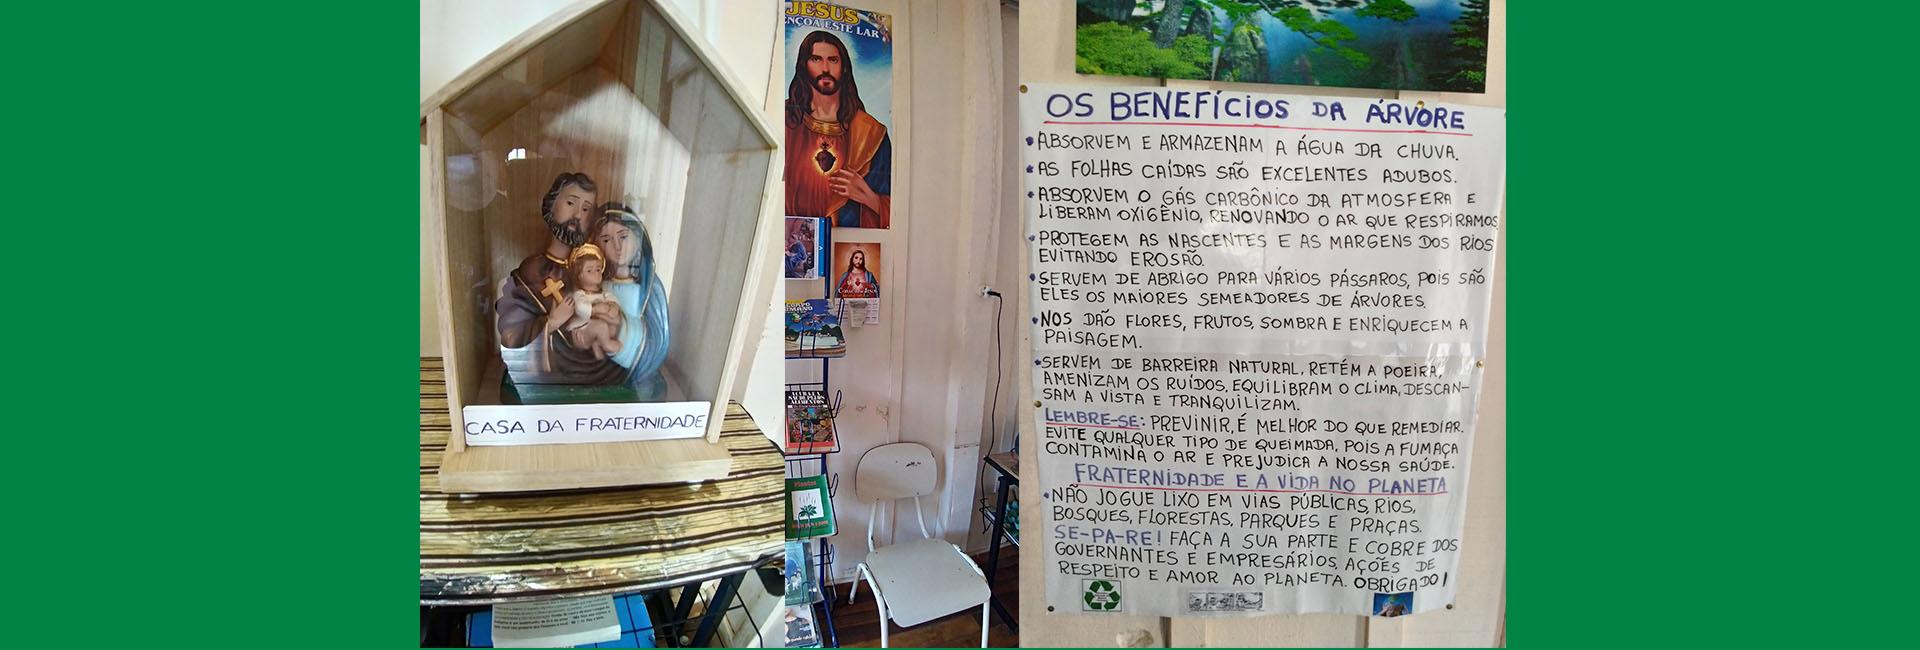 CASA DA FRATERNIDADE
JESUS
ESTE LAR
OS BENEFÍCIOS DA ÁRVORE
• ABSORVEM E ARMAZENAM A ÁGUA DA CHUVA.
• AS FOLHAS CAÍDAS SÃO EXCELENTES ADUBOS.
• ABSORVEM O GÁS CARBÔNICO DA ATMOSFERA E
LIBERAM OXIGÊNIO, RENOVANDO O AR QUE RESPIRAMOS
• PROTEGEM AS NASCENTES E AS MARGENS DOS RIOS
EVITANDO EROSÃO.
• SERVEM DE ABRIGO PARA VÁRIOS PÁSSAROS, POIS SÃO
ELES OS MAIORES SEMEADORES DE ÁRVORES.
• NOS DÃO FLORES, FRUTOS, SOMBRA E ENRIQUECEM A
PAISAGEM.
• SERVEM DE BARREIRA NATURAL, RETÉM A POEIRA,
AMENIZAM OS RUÍDOS, EQUILIBRAM O CLIMA, DESCAN-
SAM A VISTA E TRANQUILIZAM.
LEMBRE-SE: PREVINIR, É MELHOR DO QUE REMEDIAR.
EVITE QUALQUER TIPO DE QUEIMADA, POIS A FUMAÇA
CONTAMINA O AR E PREJUDICA A NOSSA SAÚDE.
FRATERNIDADE E A VIDA NO PLANETA
• NÃO JOGUE LIXO EM VIAS PÚBLICAS, RIOS,
BOSQUES, FLORESTAS, PARQUES E PRAÇAS.
SE-PA-RE! FAÇA A SUA PARTE E COBRE DOS
GOVERNANTES E EMPRESÁRIOS, AÇÕES DE
RESPEITO E AMOR AO PLANETA. OBRIGADO!